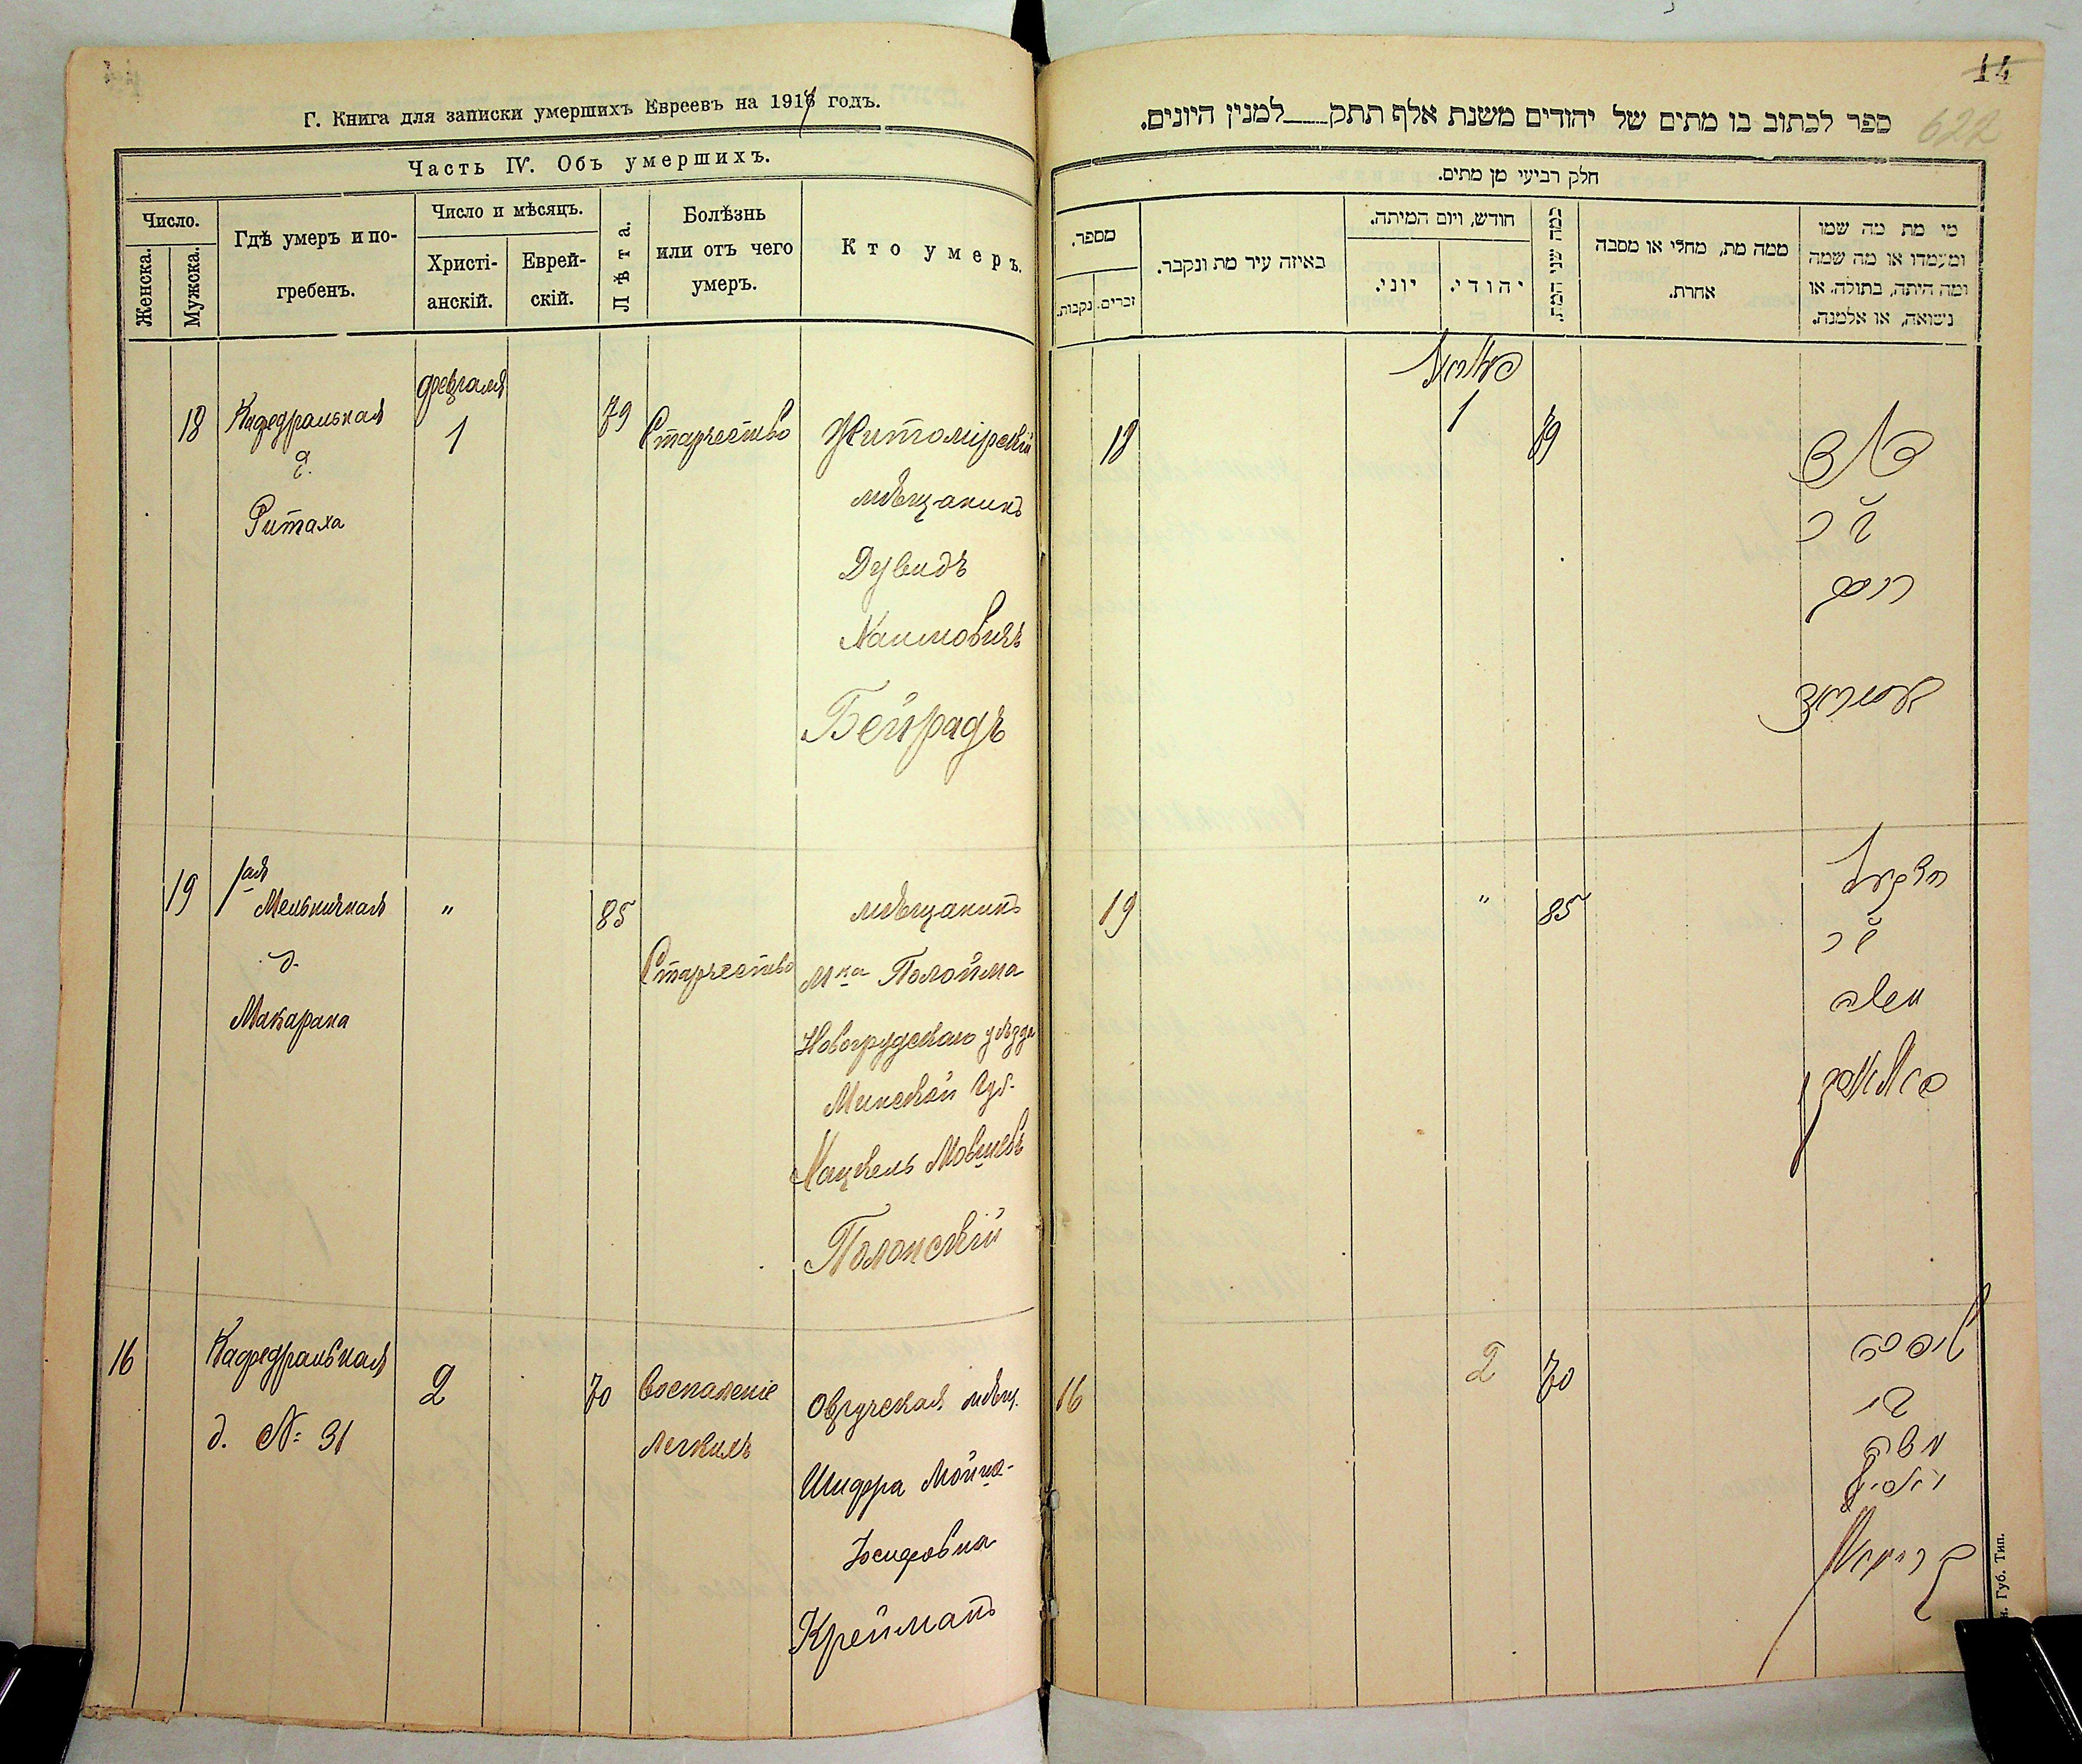 Г. Книга для записки умершихъ Евреевъ на 1917 годъ.
Часть IV. Объ умершихъ.
Число.
Женска.
Мужска.
Гдѣ умеръ и по-
гребенъ.
Число и мѣсяцъ.
Христі-
анскій.
Еврей-
скій.
Лѣта.
Болѣзнь
или отъ чего
умеръ.
Кто умеръ.
18
Кафедральная
д.
Ритаха
февраля
1
79
Старчество
Житомірскій
мѣщанинъ
Дувидъ
Хаимовичъ
Бейградъ
19
1ая
Мельничная
д.
Макарана
"
85
Старчество
мѣщанинъ
мка
Новогрудскаго уѣзда
Минской губ.
Хацкель Мовшевъ
Полонскій
16
Кафедральная
д. № 31
2
70
Воспаленіе
легкихъ
Овручская мѣщ.
Шифра Мойша-
Іосифовна
Крейманъ
14
622
ספר לכתוב בו מתים של יהודים משנת אלף תתק___למנין היונים.
חלק רביעי מן מתים.
מספר.
נקבות.
זכרים.
באיזה עיר מת ונקבר.
חודש, ויום המיתה.
יוני.
יהודי.
כמה שני המת.
ממה מת, מחלי או מסבה
אחרת.
מי מת מה שמו
ומעמדו או מה שמה
ומה היתה, בתולה, או
נשואה, או אלמנה.
18
1
79
דוד
חיים
19
"
85
יחזקאל
משה
16
2
70
שפרה
משה
קריימאן
н. Губ. Тип.